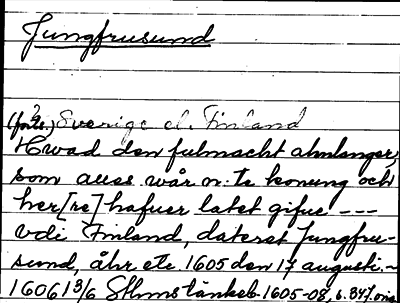 Jungfrusund
(forts.) ? Sverige el. Finland
Hwad den fulmacht ahnlanger,
som aues wår n: te konung och
her[re] hafuer latet gifue ---
vdi Finland, dateret Jungfru-
sund, åhr etc 1605 den 17 augusti. -
1606 13/6 Sthms tänkeb. 1605-08, s. 347